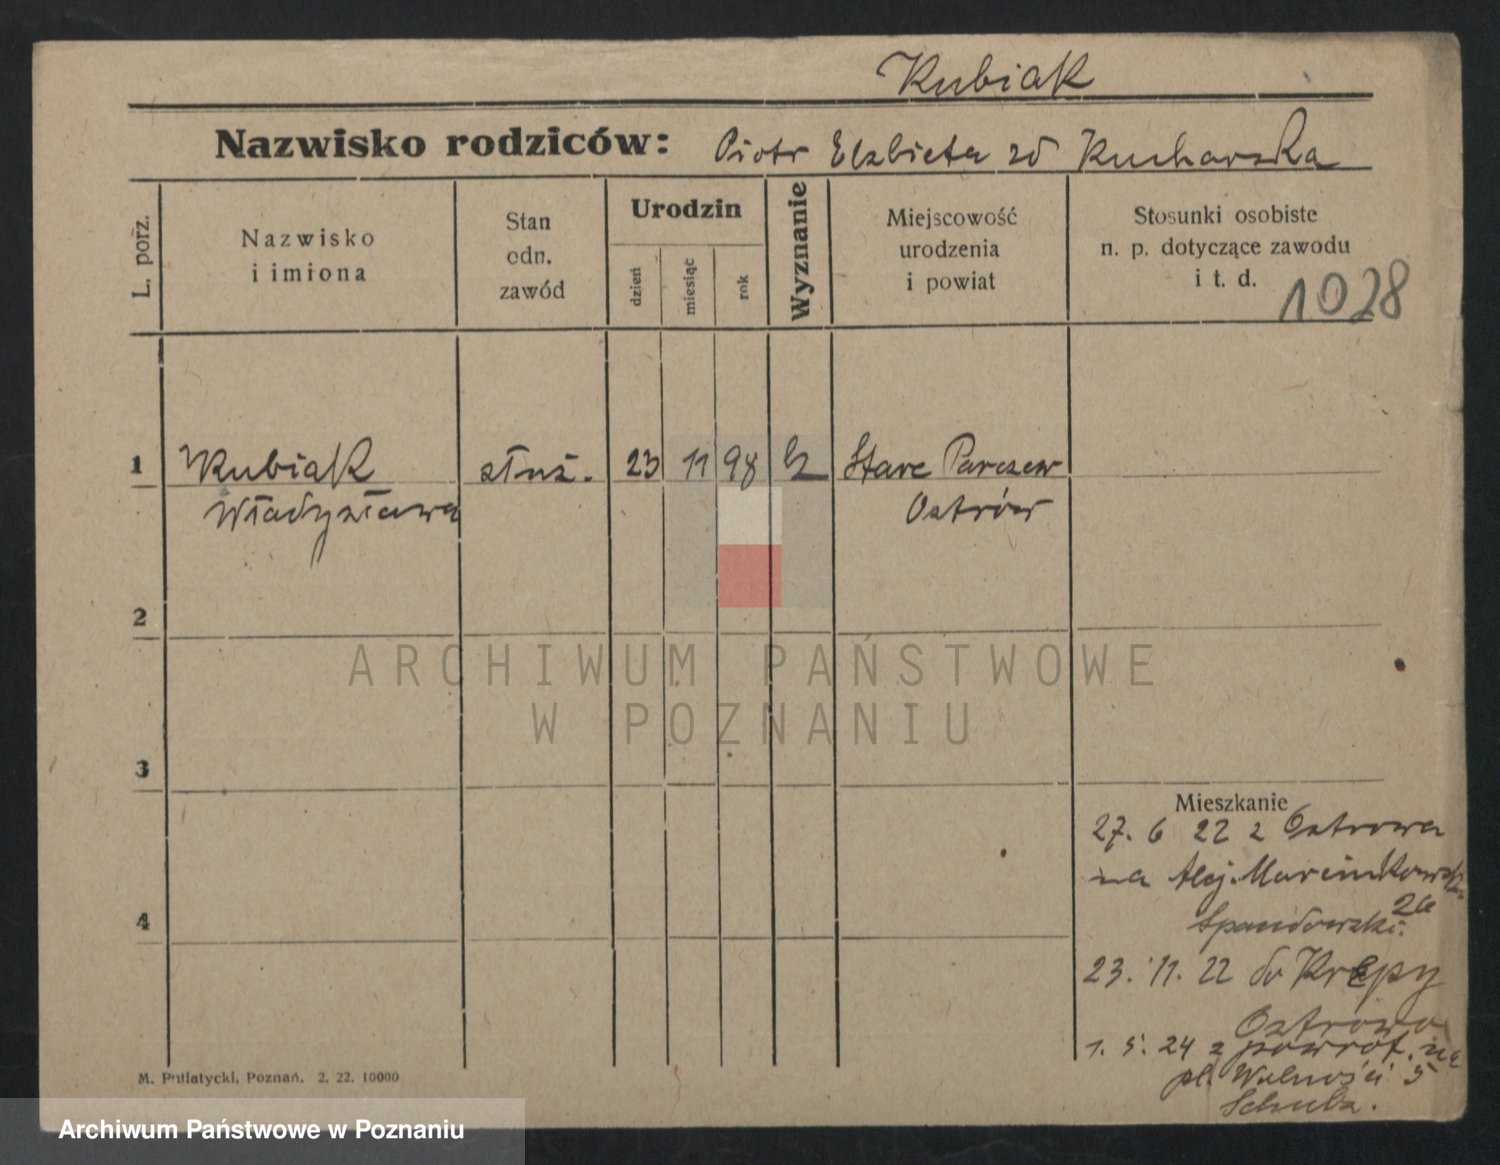 Kubiak
Nazwisko rodziców: Piotr Elzbieta zd Kucharska
L. porz.
Nazwisko
i imiona
Stan
odn.
zawód
Urodzin
dzień
miesiąc
rok
Wyznanie
Miejscowość
urodzenia
i powiat
Stosunki osobiste
n. p. dotyczące zawodu
i t. d.
1028
1 Kubiak służ. 23 11 98 Stare Parczew
Władysława Ostrów
2
3
4
Mieszkanie
27. 6 22 z Ostrowa
na Alej. Marcinkowsk
26
Spandowski.
23. 11. 22 do Krępy
Ostrowo
1. 5. 24 z powrot. na
pl. Wolności 5
Schulz.
M. Putiatycki, Poznań. 2. 22. 10000
ARCHIWUM PAŃSTWOWE
W POZNANIU
Archiwum Państwowe w Poznaniu